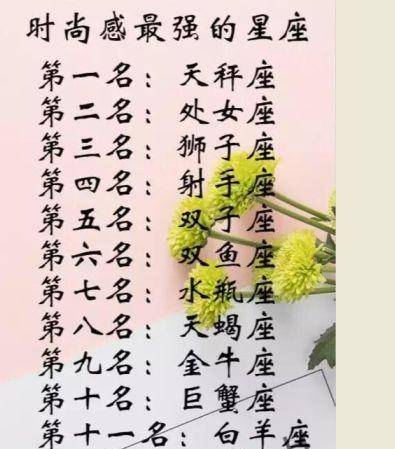 时尚感最强的星座
第一名：天秤座
第二名：处女座
第三名：狮子座
第四名：射手座
第五名：双子座
第六名：双鱼座
第七名：水瓶座
第八名：天蝎座
第九名：金牛座
第十名：巨蟹座
第十一名：白羊座